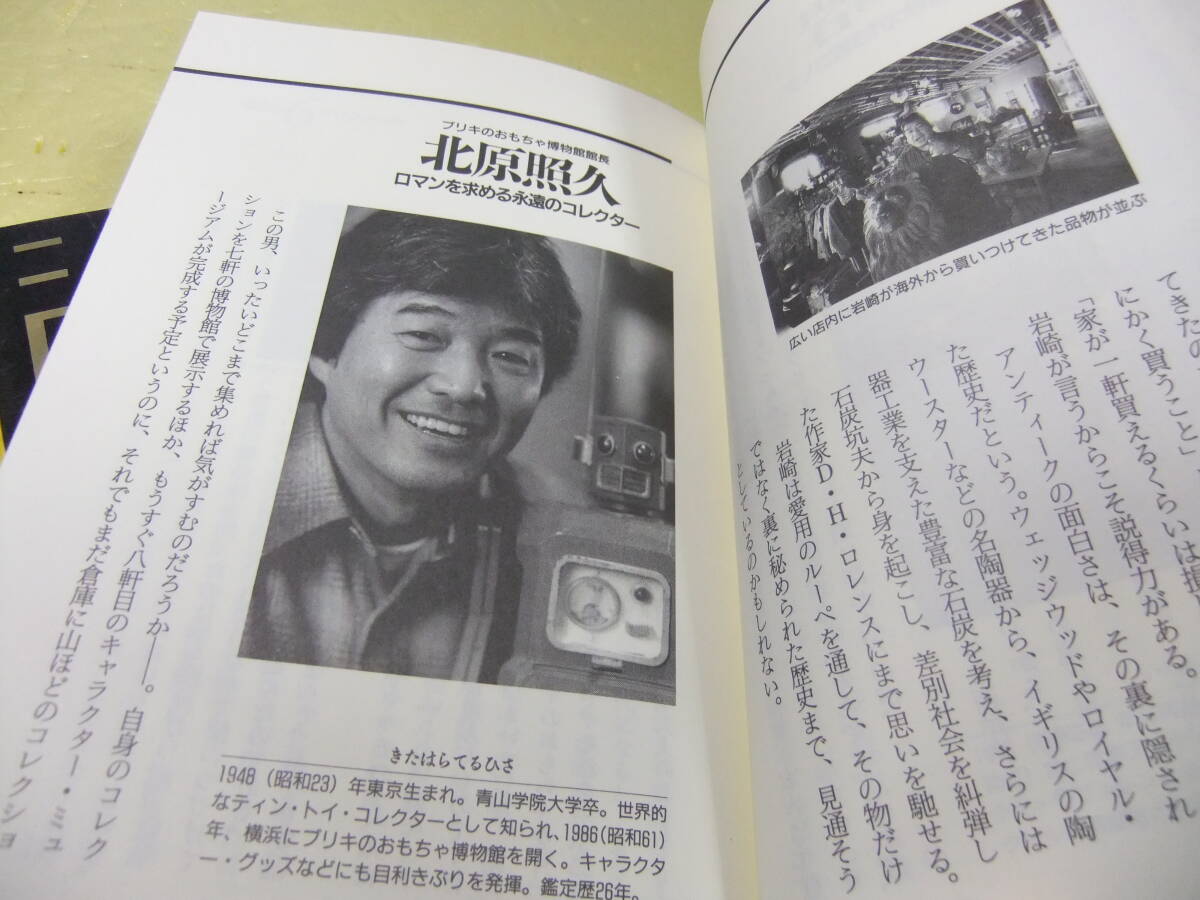 広い店内に岩崎が海外から買いつけてきた品物が並ぶ
てきたの
にかく買うこと」
「家が一軒買えるくらいは
岩崎が言うからこそ説得力がある。
アンティークの面白さは、その裏に隠され
た歴史だという。ウェッジウッドやロイヤル・
ウースターなどの名陶器から、イギリスの陶
器工業を支えた豊富な石炭を考え、さらには
石炭坑夫から身を起こし、差別社会を糾弾し
た作家D・H・ロレンスにまで思いを馳せる。
岩崎は愛用のルーペを通して、その物だけ
ではなく裏に秘められた歴史まで、見通そう
としているのかもしれない。
ブリキのおもちゃ博物館館長
北原照久
ロマンを求める永遠のコレクター
この男、いったいどこまで集めれば気がすむのだろうか――。自身のコレク
ションを七軒の博物館で展示するほか、もうすぐ八軒目のキャラクター・ミュ
ージアムが完成する予定というのに、それでもまだ倉庫に山ほどのコレクショ
きたはらてるひさ
1948（昭和23）年東京生まれ。青山学院大学卒。世界的
なティン・トイ・コレクターとして知られ、1986（昭和61）
年、横浜にブリキのおもちゃ博物館を開く。キャラクタ
ー・グッズなどにも目利きぶりを発揮。鑑定歴26年。